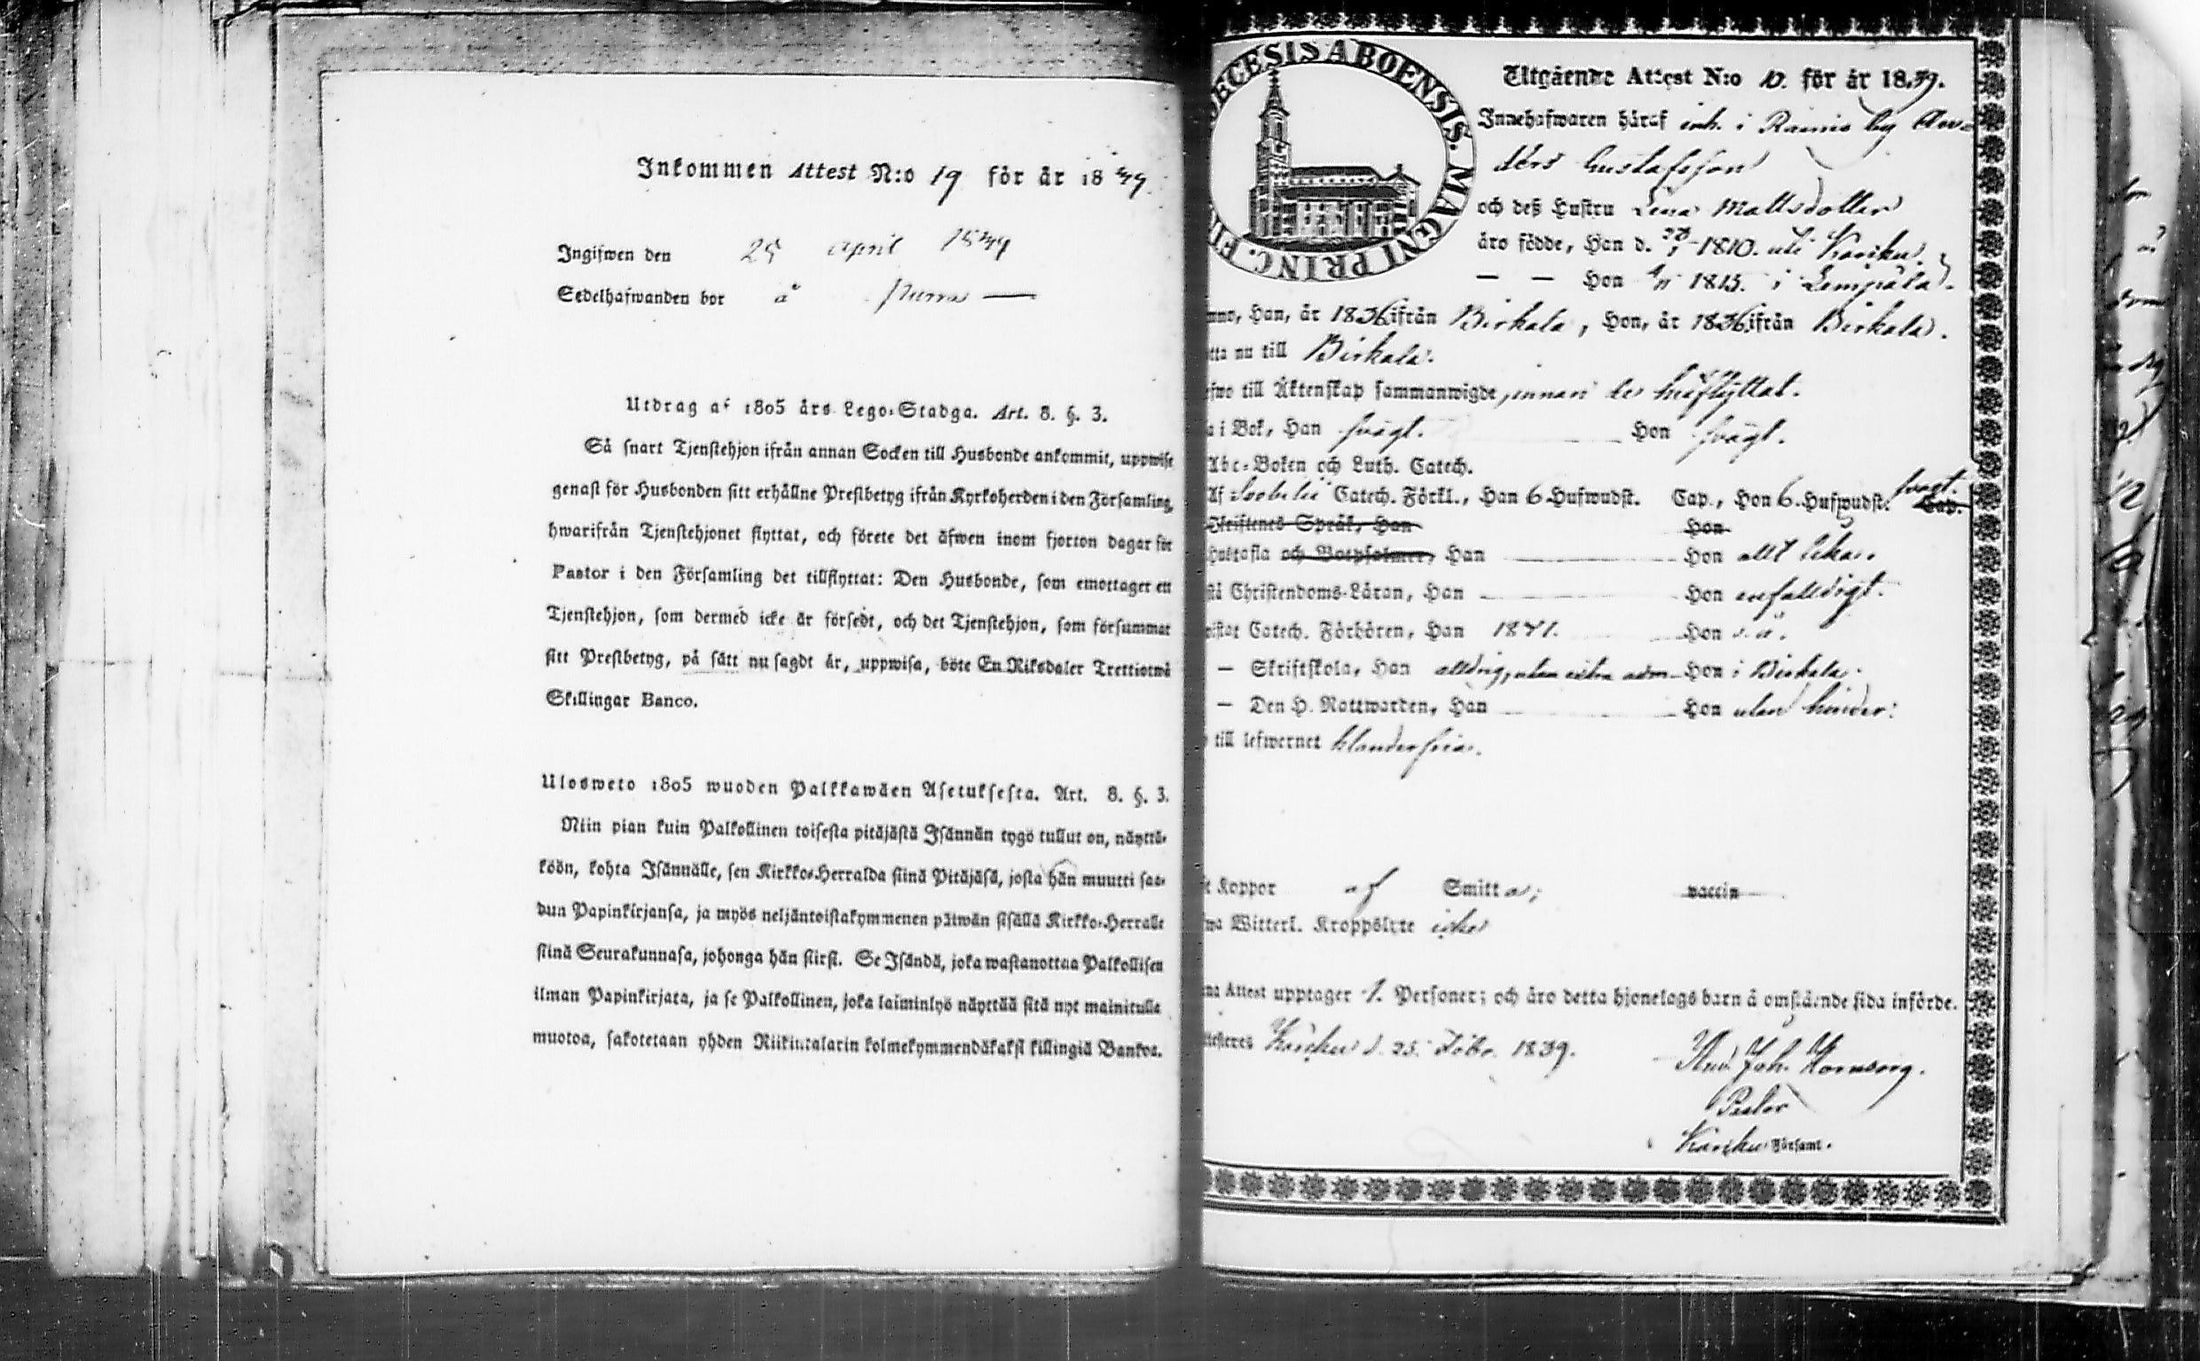 Inkommen Attest N:o 19 för år 1849
Ingifwen den 25 april 1849
Sedelhafwanden bor å
Utdrag af 1805 års Lego-Stadga. Art. 8. §. 3.
Så snart Tjenstehjon ifrån annan Socken till Husbonde ankommit, uppwise
genast för Husbonden sitt erhållne Prestbetyg ifrån Kyrkoherden i den Församling,
hwarifrån Tjenstehjonet flyttat, och förete det äfwen inom fjorton dagar för
Pastor i den Församling det tillflyttat: Den Husbonde, som emottager en
Tjenstehjon, som dermed icke är försedt, och det Tjenstehjon, som försummar
sitt Prestbetyg, på sätt nu sagdt är, uppwisa, böte En Riksdaler Trettiotwå
Skillingar Banco.
Ulosweto 1805 wuoden Palkkawäen Asetuksesta. Art. 8. §. 3.
Niin pian kuin Palkollinen toisesta pitäjästä Isännän tygö tullut on, näyttä-
köön, kohta Isännälle, sen Kirkko-Herralda siinä Pitäjäsä, josta hän muutti saa-
dun Papinkirjansa, ja myös neljäntoistakymmenen päiwän sisällä Kirkko-Herralle
siinä Seurakunnasa, johonga hän siirsi. Se Isändä, joka wastanottaa Palkollisen
ilman Papinkirjata, ja se Palkollinen, joka laiminlyö näyttää sitä nyt mainitulla
muotoa, sakotetaan yhden Riikintalarin kolmekymmendäkaksi killingiä Bankos.
ECESIS ABOENSIS. MAGNI PRINC. FI
Utgående Attest N:o 10. för år 1839.
Innehafwaren häraf inh. i Rainio by An-
ders Gustafsson
och deß Hustru Lena Mattsdotter
äro födde, Han d. 1810. uti Karkku.
— — Hon 1815. i Lempäla.
Han, år 1836 ifrån Birkala, Hon, år 1836 ifrån Birkala.
nu till Birkala.
till Äktenskap sammanwigde, innan de hitflyttat.
i Bok, Han swagt. Hon swagt.
Abc-Boken och Luth. Catech.
Af Catech. Förkl., Han 6 Hufwudst. Cap., Hon 6. Hufwudst. swagt. Cap.
Skriftenes Språk, Han Hon
Hustafla och Botpsalmer, Han Hon allt lika.
Christendoms-Läran, Han Hon enfalldigt.
Catech. Förhören, Han 1841. Hon d. ä.
— Skriftskola, Han alldrig, utan extra adm. Hon i Birkala.
— Den H. Nattwarden, Han Hon utan hinder:
till lefwernet klanderfria.
Koppor af Smittas; vaccin
Witterl. Kroppslyte icke
Attest upptager 1. Personer; och äro detta hjonelags barn å omstående sida införde.
Karkku d. 25. 1839.
And. Joh. Hornborg.
Pastor
Karkku Församl.